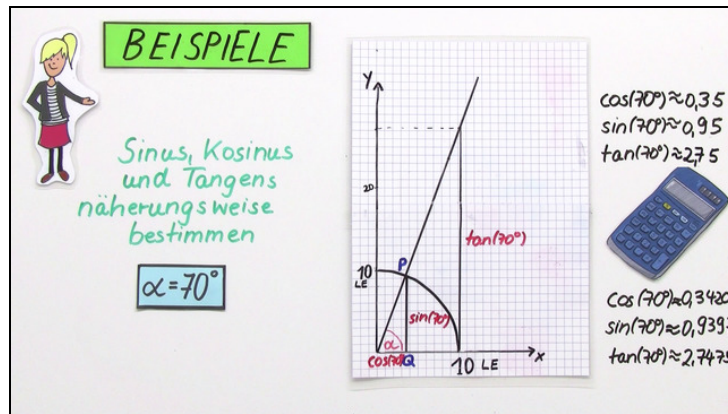 BEISPIELE
Sinus, Kosinus
und Tangens
näherungsweise
bestimmen
α = 70°
y
20
10
LE
P
tan(70°)
sin(70°)
α
cos(70°)
Q
10 LE
x
cos(70°)≈0,35
sin(70°)≈0,95
tan(70°)≈2,75
cos(70°)≈0,3420
sin(70°)≈0,939
tan(70°)≈2,747